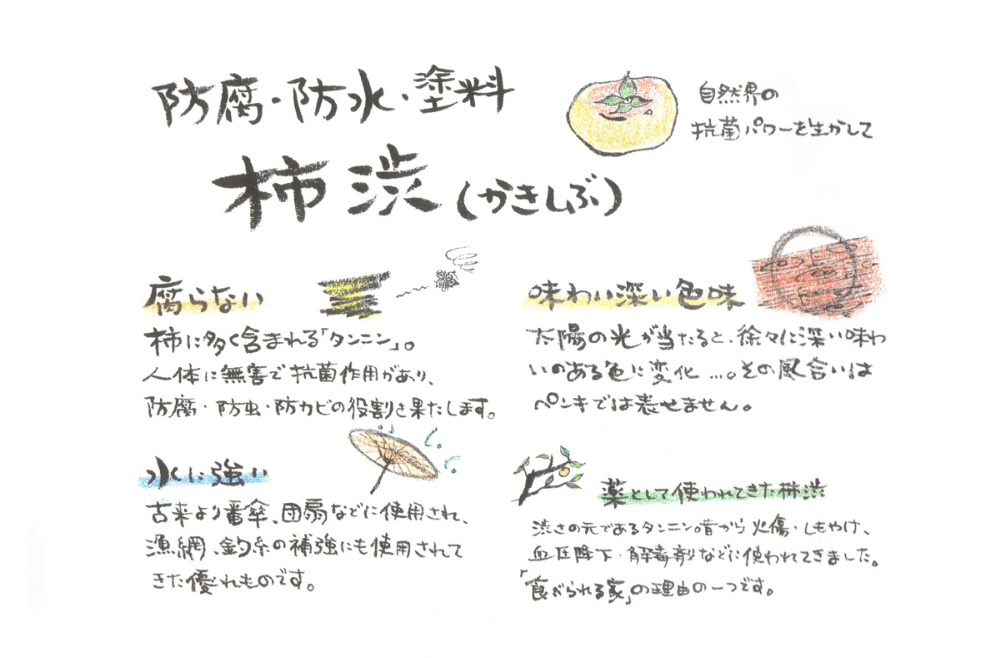 防腐・防水・塗料
自然界の
抗菌パワーを生かして
柿渋(かきしぶ)
腐らない
柿に多く含まれる「タンニン」。
人体に無害で抗菌作用があり、
防腐・防虫・防カビの役割を果たします。
水に強い
古来より番傘、団扇などに使用され、
漁網、釣糸の補強にも使用されて
きた優れものです。
味わい深い色味
太陽の光が当たると、徐々に深い味わ
いのある色に変化…。その風合いは
ペンキでは表せません。
薬として使われてきた柿渋
渋さの元であるタンニン。昔から火傷・しもやけ、
血圧降下・解毒剤などに使われてきました。
「食べられる家」の理由の一つです。